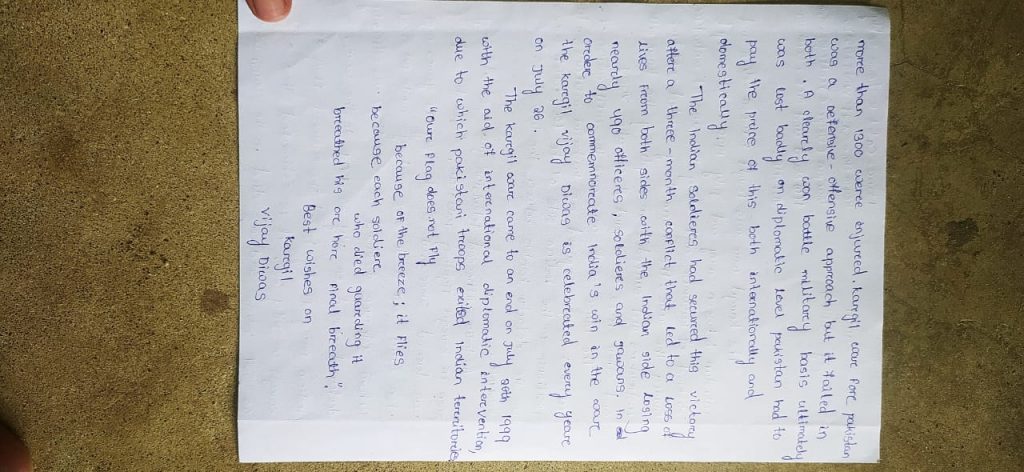 more than 1300 were enjurced. Karegil ware fore pakistan
was a defensive - offensive approach but it failed in
both. A clearely won battle militarcy basis ultimately
was lost badly on diplomatic level pakistan had to
pay the price of this both internationally and
domestically.
The Indian soldieres had securced this victory
aftere a three-month conflict that led to a loss of
lives from both sides with the Indian side losing
nearcly 490 officeres, soldieres and jawans. In
ordere to commemorcate India's win in the ware
the karegil vijay Diwas is celebrcated every yeare
on July 26.
The karegil ware came to an end on july 26th 1999
with the aid of international diplomatic intercvention,
due to which pakistani troops exited Indian tercritories
"Oure Flag does not Fly
because of the breeze; it Flies
because each soldiere
who died guarcding it
brceathed his orc here final brceath".
Best wishes on
Karegil
Vijay Diwas